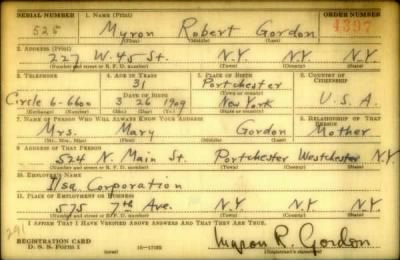 SERIAL NUMBER 1. NAME (Print) ORDER NUMBER
525 Myron Robert Gordon 4397
(First) (Middle) (Last)
2. ADDRESS (Print)
227 W. 45 St. N.Y. N.Y. N.Y.
(Number and street or R. F. D. number) (Town) (County) (State)
3. TELEPHONE 4. AGE IN YEARS 5. PLACE OF BIRTH 6. COUNTRY OF CITIZENSHIP
31 Portchester
DATE OF BIRTH (Town or county)
Circle 6-6600 3 26 1909 New York U.S.A.
(Exchange) (Number) (Mo.) (Day) (Yr.) (State or country)
7. NAME OF PERSON WHO WILL ALWAYS KNOW YOUR ADDRESS 8. RELATIONSHIP OF THAT PERSON
Mrs. Mary Gordon Mother
(Mr., Mrs., Miss) (First) (Middle) (Last)
9. ADDRESS OF THAT PERSON
524 N. Main St. Portchester Westchester N.Y.
(Number and street or R. F. D. number) (Town) (County) (State)
10. EMPLOYER'S NAME
Corporation
11. PLACE OF EMPLOYMENT OR BUSINESS
575 7th Ave. N.Y. N.Y.
(Number and street or R. F. D. number) (Town) (County) (State)
I AFFIRM THAT I HAVE VERIFIED ABOVE ANSWERS AND THAT THEY ARE TRUE.
291
REGISTRATION CARD
D. S. S. Form 1 16—17105 Myron R. Gordon
(over)